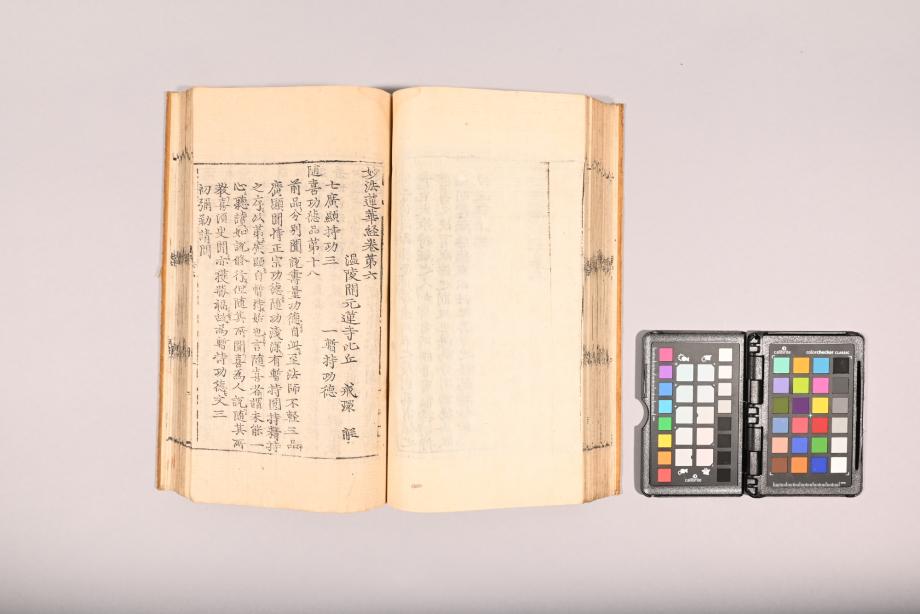 妙法蓮華經卷第六
溫陵開元蓮寺比丘 戒環 解
七廣顯持功三 一暫持功德
隨喜功德品第十八
前品分別圓說壽量功德自此至法師不輕三品
廣顯聞持正宗功德隨功淺深有暫持圓持精持
之序以第廣顯自暫持始也言隨喜者謂未能一
心聽讀如說修行但隨其所聞喜為人說隨其所
喜須臾聞亦獲勝福故為暫持功德文三
初彌勒請問
calibrite
calibrite
colorchecker CLASSIC